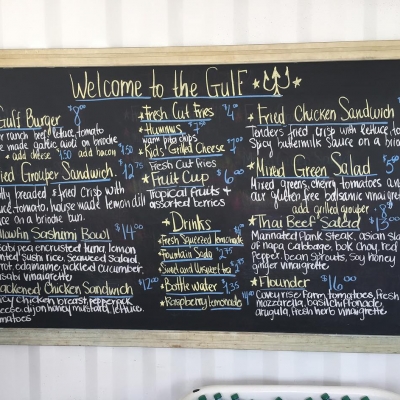 Welcome to the Gulf
Gulf Burger $8.00
ranch beef, lettuce, tomato
made garlic aioli on brioche
add cheese $.50 add bacon $1.50
Fried Grouper Sandwich. $12.75
breaded & fried crisp with
tomato, house made lemon dill
on a brioche bun.
Sashimi Bowl $14.00
pea encrusted tuna, lemon
sushi rice, Seaweed Salad,
edamame, pickled cucumber,
wasabi vinaigrette
Blackened Chicken Sandwich $12.00
chicken breast, pepperjack
cheese, dijon honey mustard, lettuce,
tomatoes
Fresh Cut Fries $4.00
Hummus
warm pita chips
Kid's Grilled Cheese $7.00
Fresh Cut Fries
Fruit Cup $6.00
Tropical fruits +
assorted berries
Drinks
Fresh Squeezed lemonade
Fountain Soda $2.75
Sweet and Unsweet tea
Bottle water $1.35
Raspberry lemonade
Fried Chicken Sandwich
Tenders fried crisp with lettuce, to
Spicy buttermilk sauce on a brio
Mixed Green Salad
Mixed greens, cherry tomatoes an
our gluten free balsamic vinaigre
add grilled grouper
Thai Beef Salad
Marinated flank steak, asian sla
of napa cabbage, bok choy, red
Pepper, bean Sprouts, soy honey
ginger vinaigrette
Flounder $16.00
Cuvey rise Farm tomatoes, fresh
mozzarella, basil chiffonade,
arugula, fresh herb vinaigrette